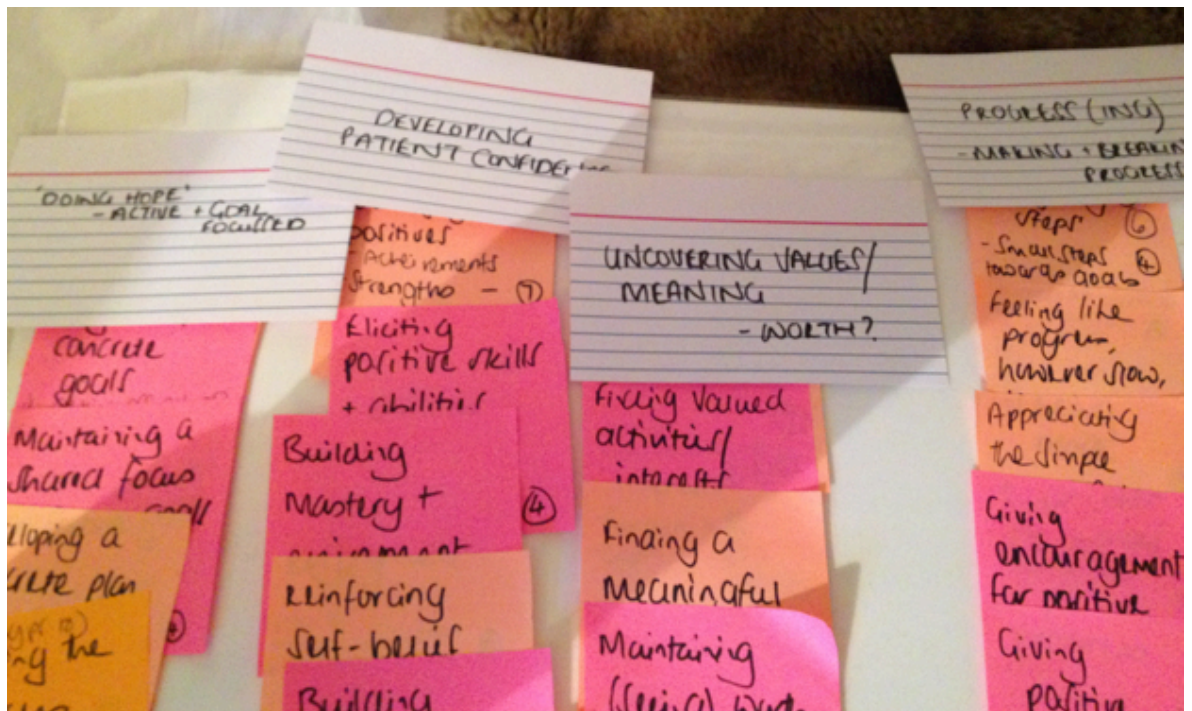 'DOING HOPE'
- ACTIVE + GOAL
FOCUSSED
concrete
goals
Maintaining a
shared focus
goals
a
plan
the
DEVELOPING
PATIENT
positives
- Achievements
Strengths - 7
Eliciting
positive skills
+ abilities
4
Building
Mastery +
Reinforcing
self-belief
Building
UNCOVERING VALUES/
MEANING
- WORTH?
Finding valued
activities/
interests
Finding a
meaningful
Maintaining
PROGRESS (ING)
- MAKING + BREAKIN
PROGRESS
steps 6
- Small steps 4
towards goals
Feeling like
progress,
however slow,
Appreciating
the simple
Giving
encouragement
for positive
Giving
positive